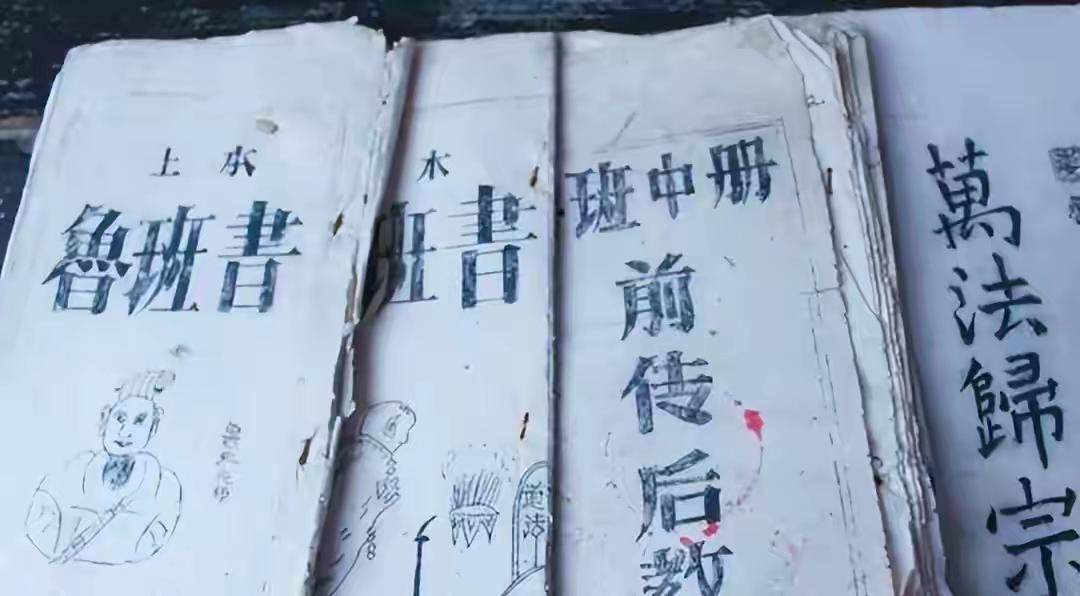 上本
魯班書
木
班書
班中册
前
传
后
教
道法
萬
法
歸
宗